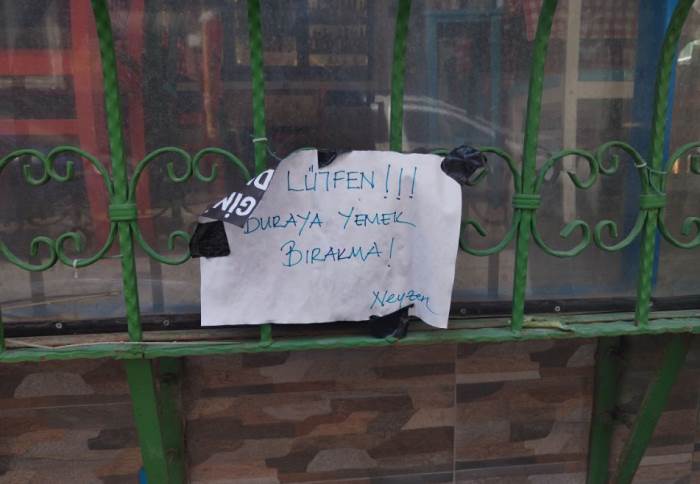 LÜTFEN!!!
DURAYA YEMEK
BIRAKMA!
Neyzen
GİN